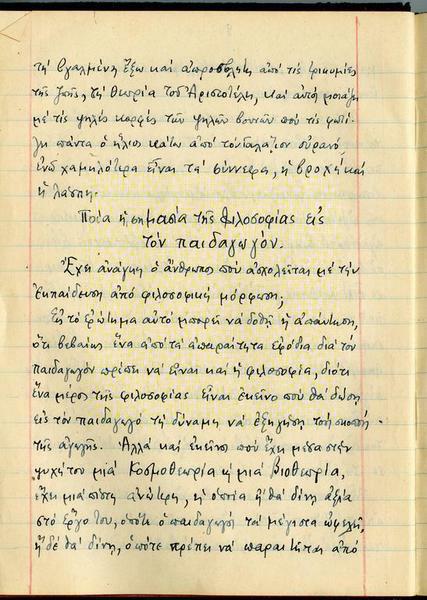 τη βγαλμένη ἔξω καί ἀπροσβλητη ἀπό τίς τρικυμίες
τῆς ζωῆς, τή θεωρία τοῦ Ἀριστοτέλη, καί αὐτή μοιάζει
μέ τίς ψηλές κορφές τῶν ψηλῶν βουνῶν πού τίς φωτί-
ζει πάντα ὁ ἥλιος κάτω ἀπό τόν γαλάζιον οὐρανό,
ἐνῶ χαμηλότερα εἶναι τά σύννεφα, ἡ βροχή καί
ἡ λάσπη.
Ποία ἡ σημασία τῆς Φιλοσοφίας εἰς
τόν παιδαγωγόν.
Ἔχει ἀνάγκη ὁ ἄνθρωπος πού ἀσχολεῖται μέ τήν
ἐκπαίδευση ἀπό φιλοσοφική μόρφωση;
Εἰς τό ἐρώτημα αὐτό μπορεῖ νά δοθῇ ἡ ἀπάντηση,
ὅτι βεβαίως ἕνα ἀπό τά ἀπαραίτητα ἐφόδια διά τόν
παιδαγωγόν πρέπει νά εἶναι καί ἡ φιλοσοφία, διότι
ἕνα μέρος τῆς φιλοσοφίας εἶναι ἐκεῖνο πού θά δώση
εἰς τόν παιδαγωγό τή δύναμη νά ἐξηγήση τό σκοπό
τῆς ἀγωγῆς. Ἀλλά καί ἐκεῖνος πού ἔχει μέσα στήν
ψυχή του μιά κοσμοθεωρία ἤ μιά βιοθεωρία,
ἔχει μιά πίστη ἀνώτερη, ἡ ὁποία ἤ θά δίνη ἀξία
στό ἔργο του, ὁπότε ὁ παιδαγωγός τά μέγιστα ὠφελεῖ,
ἤ δέ θά δίνη, ὁπότε πρέπει νά παραιτῆται ἀπό